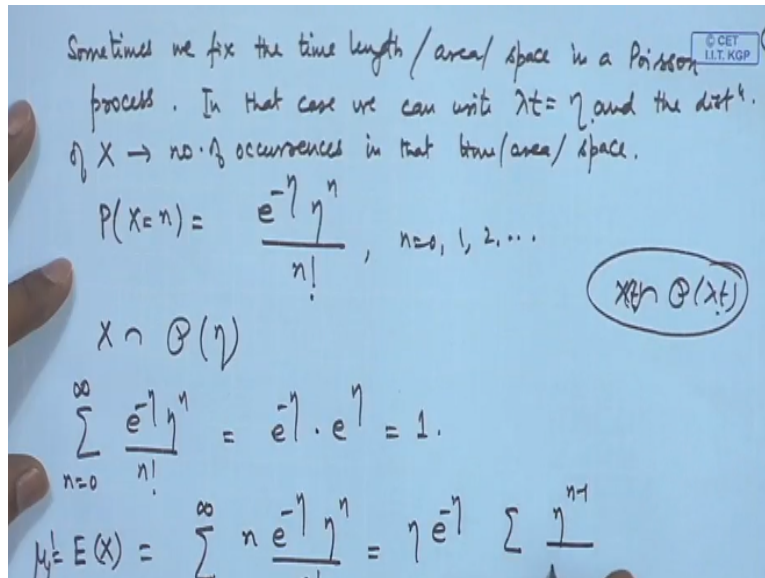 © CET
I.I.T. KGP
Sometimes we fix the time length / area / space in a Poisson
process. In that case we can write λt = η and the distⁿ.
of X → no. of occurrences in that time/area/space.
P(X=n) = e^{-η} η^n / n! , n=0, 1, 2, ...
X ~ P(η)
X(t) ~ P(λt)
∑_{n=0}^{∞} e^{-η} η^n / n! = e^{-η} . e^{η} = 1.
μ₁' = E(X) = ∑^{∞} n e^{-η} η^n / n! = η e^{-η} ∑ η^{n-1}